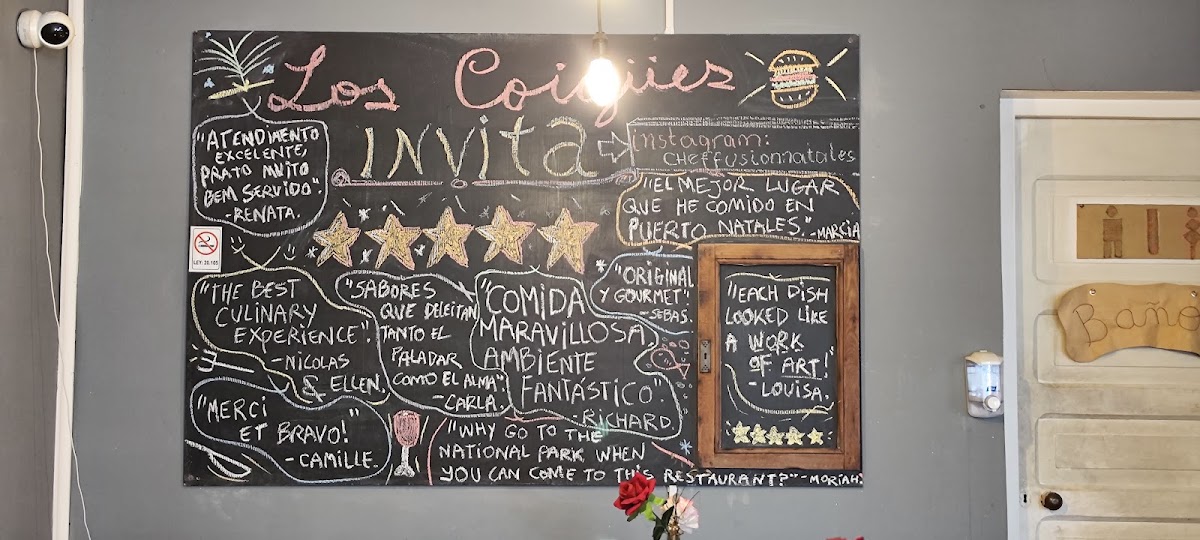 Los Coigües
INVita
instagram:
cheffusionnatales
"ATENDIMENTO
EXCELENTE,
PRATO MUITO
BEM SERVIDO".
-RENATA.
"EL MEJOR LUGAR
QUE HE COMIDO EN
PUERTO NATALES."-MARCIA
LEY: 20.105
"THE BEST
CULINARY
EXPERIENCE".
-NICOLAS
& ELLEN.
"SABORES
QUE DELEITAN
TANTO EL
PALADAR
COMO EL ALMA"
-CARLA.
"COMIDA
MARAVILLOSA,
AMBIENTE
FANTÁSTICO".
-RICHARD.
"ORIGINAL
Y GOURMET".
-SEBAS.
"EACH DISH
LOOKED LIKE
A WORK
OF ART!"
-LOUISA.
"MERCI
ET BRAVO!"
-CAMILLE.
"WHY GO TO THE
NATIONAL PARK WHEN
YOU CAN COME TO THIS RESTAURANT?"-MORIAH.
Baño